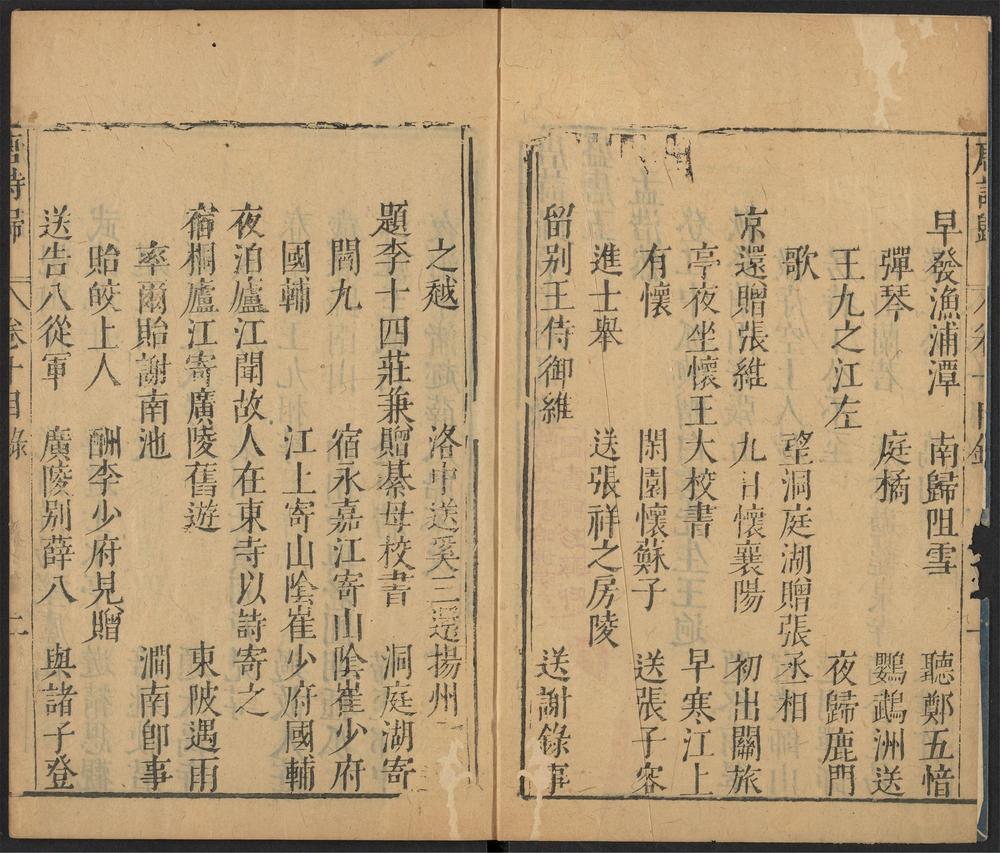 早發漁浦潭 南歸阻雪 聽鄭五愔
彈琴 庭橘 鸚鵡洲送
王九之江左 夜歸鹿門
歌 望洞庭湖贈張丞相
京還贈張維 九日懷襄陽 初出關旅
亭夜坐懷王大校書 早寒江上
有懷 閑園懷蘇子 送張子容
進士舉 送張祥之房陵
留别王侍御維 送謝錄事
之越 洛中送奚三還揚州
題李十四莊兼贈綦母校書 洞庭湖寄
閻九 宿永嘉江寄山陰崔少府
國輔 江上寄山陰崔少府國輔
夜泊廬江聞故人在東寺以詩寄之
宿桐廬江寄廣陵舊遊 東陂遇雨
率爾貽謝南池 澗南卽事
貽皎上人 酬李少府見贈
送告八從軍 廣陵别薛八 與諸子登
唐詩歸 卷十目錄 二